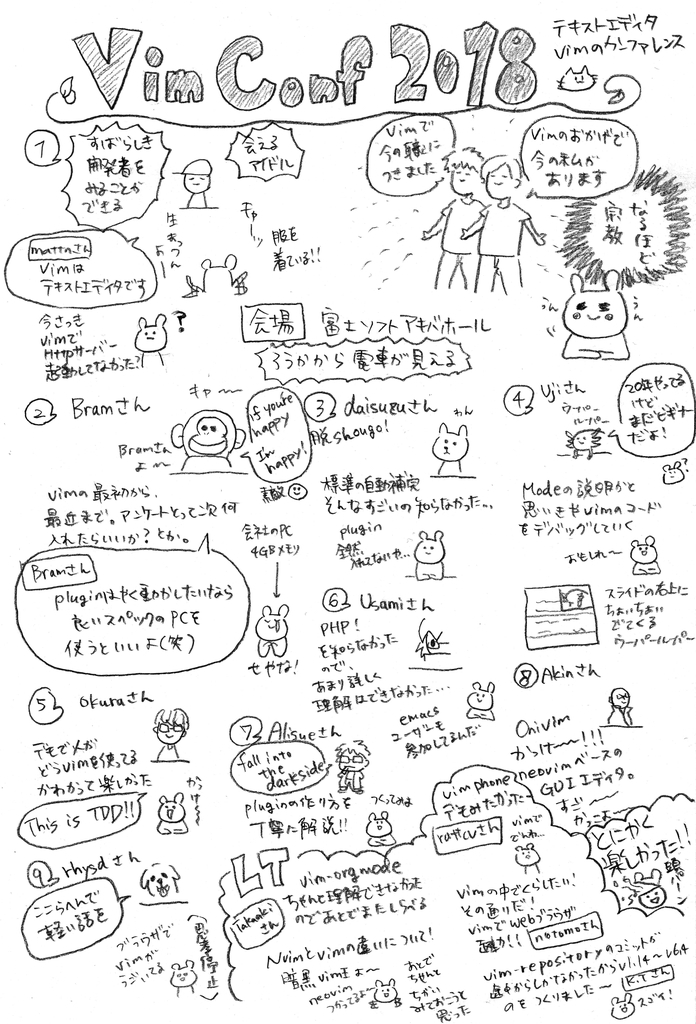 Vim Conf 2018
テキストエディタ
Vimのカンファレンス
①
すばらしき
開発者を
みることが
できる
会える
アイドル
Vimで
今の職に
つきました
Vimのおかげで
今の私が
あります
なるほど
宗教
うん
うん
mattnさん
Vimは
テキストエディタです
キャーッ
服を
着ている!!
今さっき
Vimで
Httpサーバー
起動してなかった?
?
会場 富士ソフトアキバホール
ろうかから電車が見える
② Bramさん
キャ〜
Bramさん
よ〜
If you're
happy
I'm
happy!
素敵
Vimの最初から、
最近まで。アンケートとって次何
入れたらいいか?とか。
Bramさん
pluginはやく動かしたいなら
良いスペックのPCを
使うといいよ(笑)
会社のPC
4GBメモリ
せやな!
③ daisuzuさん
脱Shougo!
わん
標準の自動補完
そんなすごいの知らなかった…
plugin
全然
④ Ujiさん
ウーパー
ルーパー
20年やってる
けど
まだビギナー
だよ!
?
Modeの説明かと
思いきやVimのコード
をデバッグしていく
おもしれ〜
スライドの右上に
ちょいちょい
でてくる
ウーパールーパー
⑤ okuraさん
デモでメが
どうVimを使ってる
かわかって楽しかった
This is TDD!!
かっけ〜
⑥ Usamiさん
PHP!
を知らなかった
ので、
あまり詳しく
理解はできなかった…
emacs
ユーザーも
参加してるんだ
⑦ Alisueさん
fall into
the
darkside
pluginの作り方を
丁寧に解説!!
つくってみよ
⑧ Akinさん
Onivim
かっけ〜!!!
neovimベースの
GUIエディタ。
すご〜
かっこよ〜
⑨ rhysdさん
ここらんで
軽い話を
ブラウザで
Vimが
うごいてる
(思考停止)
LT
vim-orgmode
ちゃんと理解できなかった
のであとでまたしらべる
Takaakiさん
NvimとVimの違いについて!
暗黒Vim王よ〜
neovim
つかってるよ〜
あとで
ちゃんと
ちがい
みておこうと
思った
vimphone
デモみたかった
Vimで
でんわ…
Vimの中でくらしたい!
その通りだ!
VimでWebブラウザ
notomoさん
vim-repositoryのコミットが
途中からしかなかったからv1.14〜v6.4
のをつくりました〜
K.tさん
スゴイ!
とにかく
楽しかった!!